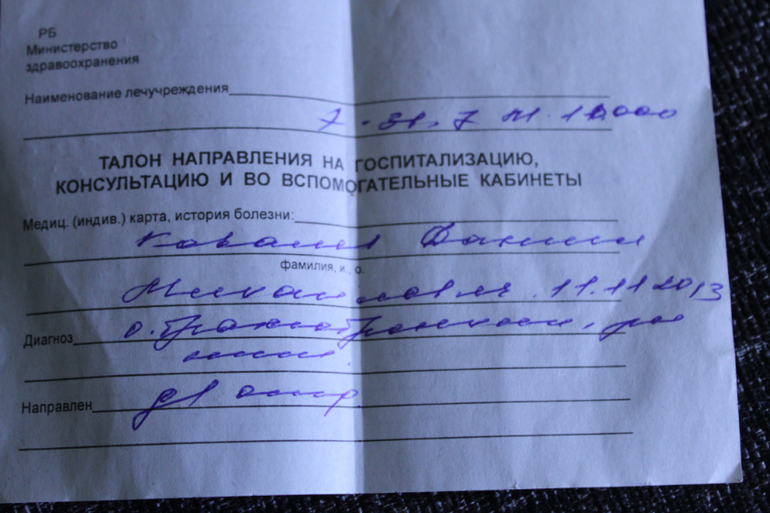 РБ
Министерство
здравоохранения
Наименование лечучреждения
ТАЛОН НАПРАВЛЕНИЯ НА ГОСПИТАЛИЗАЦИЮ,
КОНСУЛЬТАЦИЮ И ВО ВСПОМОГАТЕЛЬНЫЕ КАБИНЕТЫ
Медиц. (индив.) карта, история болезни:
Ковалев Даниил
фамилия, и., о.
Михайлович 11.11 2013
Диагноз о.
Направлен